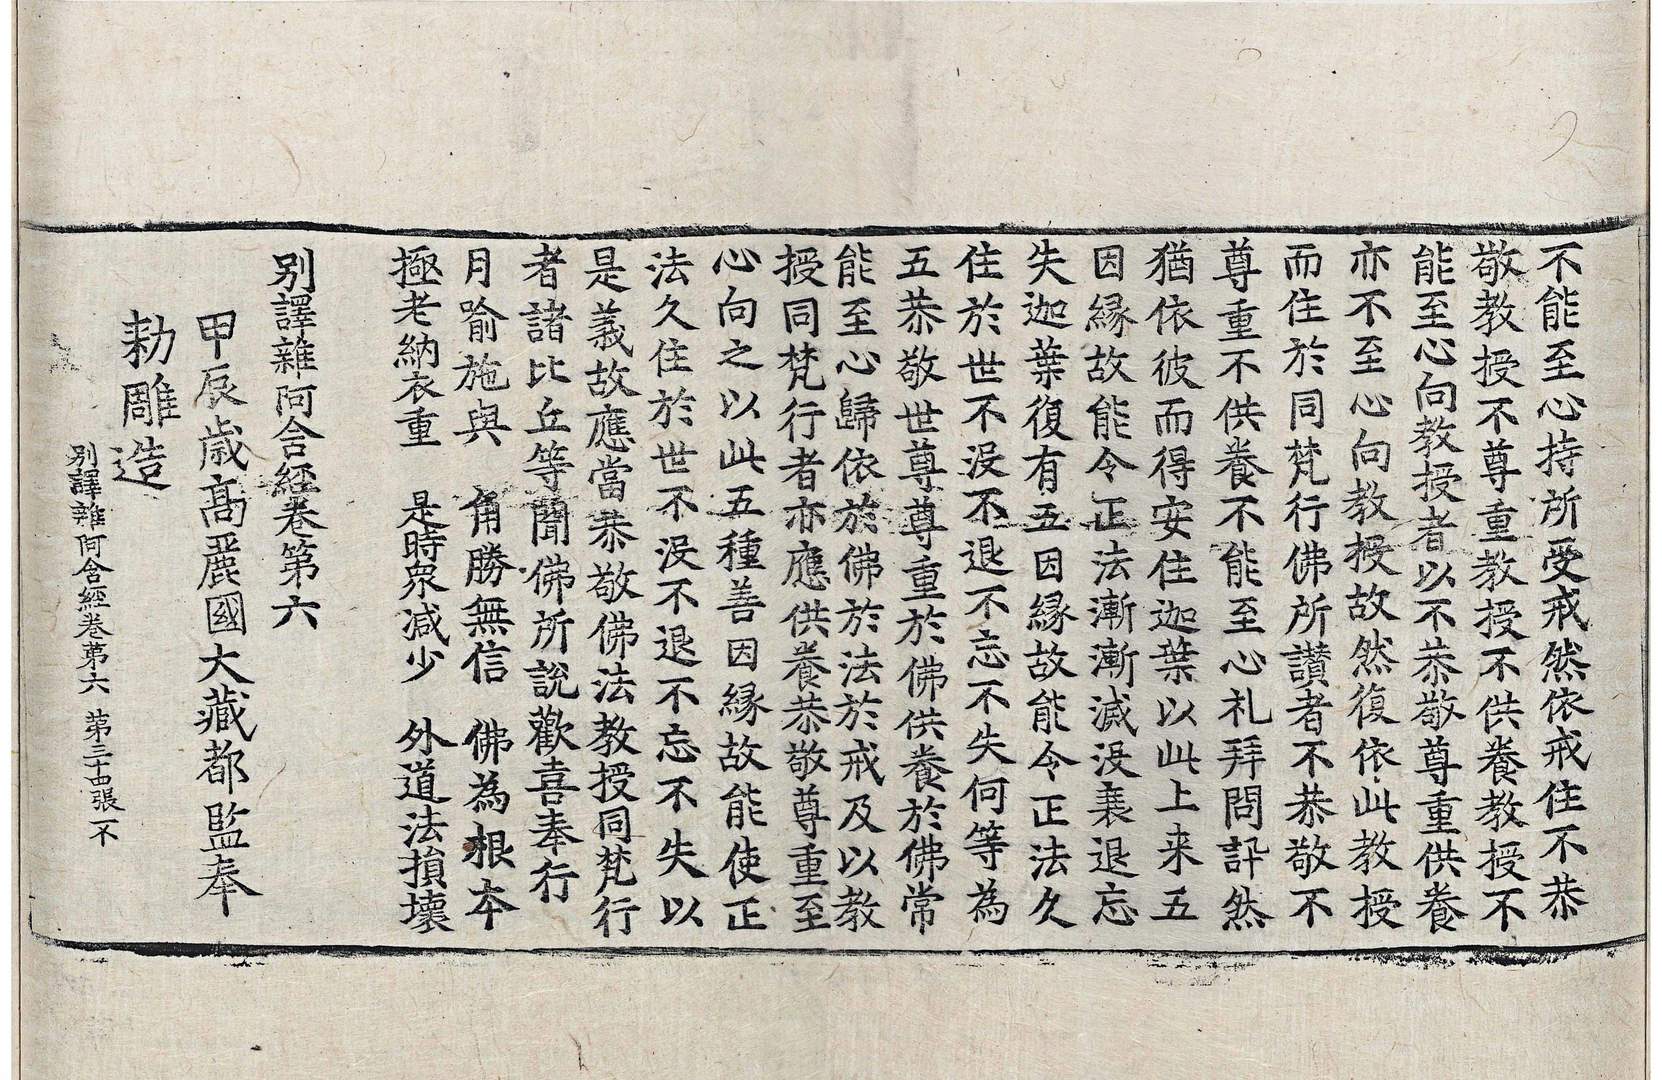 不能至心持所受戒然依戒住不恭
敬教授不尊重教授不供養教授不
能至心向教授者以不恭敬尊重供養
亦不至心向教授故然復依止教授
而住於同梵行佛所讃者不恭敬不
尊重不供養不能至心礼拜問訊然
猶依彼而得安住迦葉以此上来五
因緣故能令正法漸漸滅没衰退忘
失迦葉復有五因緣故能令正法久
住於世不没不退不忘不失何等為
五恭敬世尊尊重於佛供養於佛常
能至心歸依於佛於法於戒及以教
授同梵行者亦應供養恭敬尊重至
心向之以此五種善因緣故能使正
法久住於世不没不退不忘不失以
是義故應當恭敬佛法教授同梵行
者諸比丘等聞佛所說歡喜奉行
月喻施與 角勝無信 佛為根本
極老納衣重 是時衆减少 外道法損壞
别譯雜阿含經卷第六
甲辰歲高麗國大藏都監奉
勑雕造
别譯雜阿含經卷第六 第三十四張 不